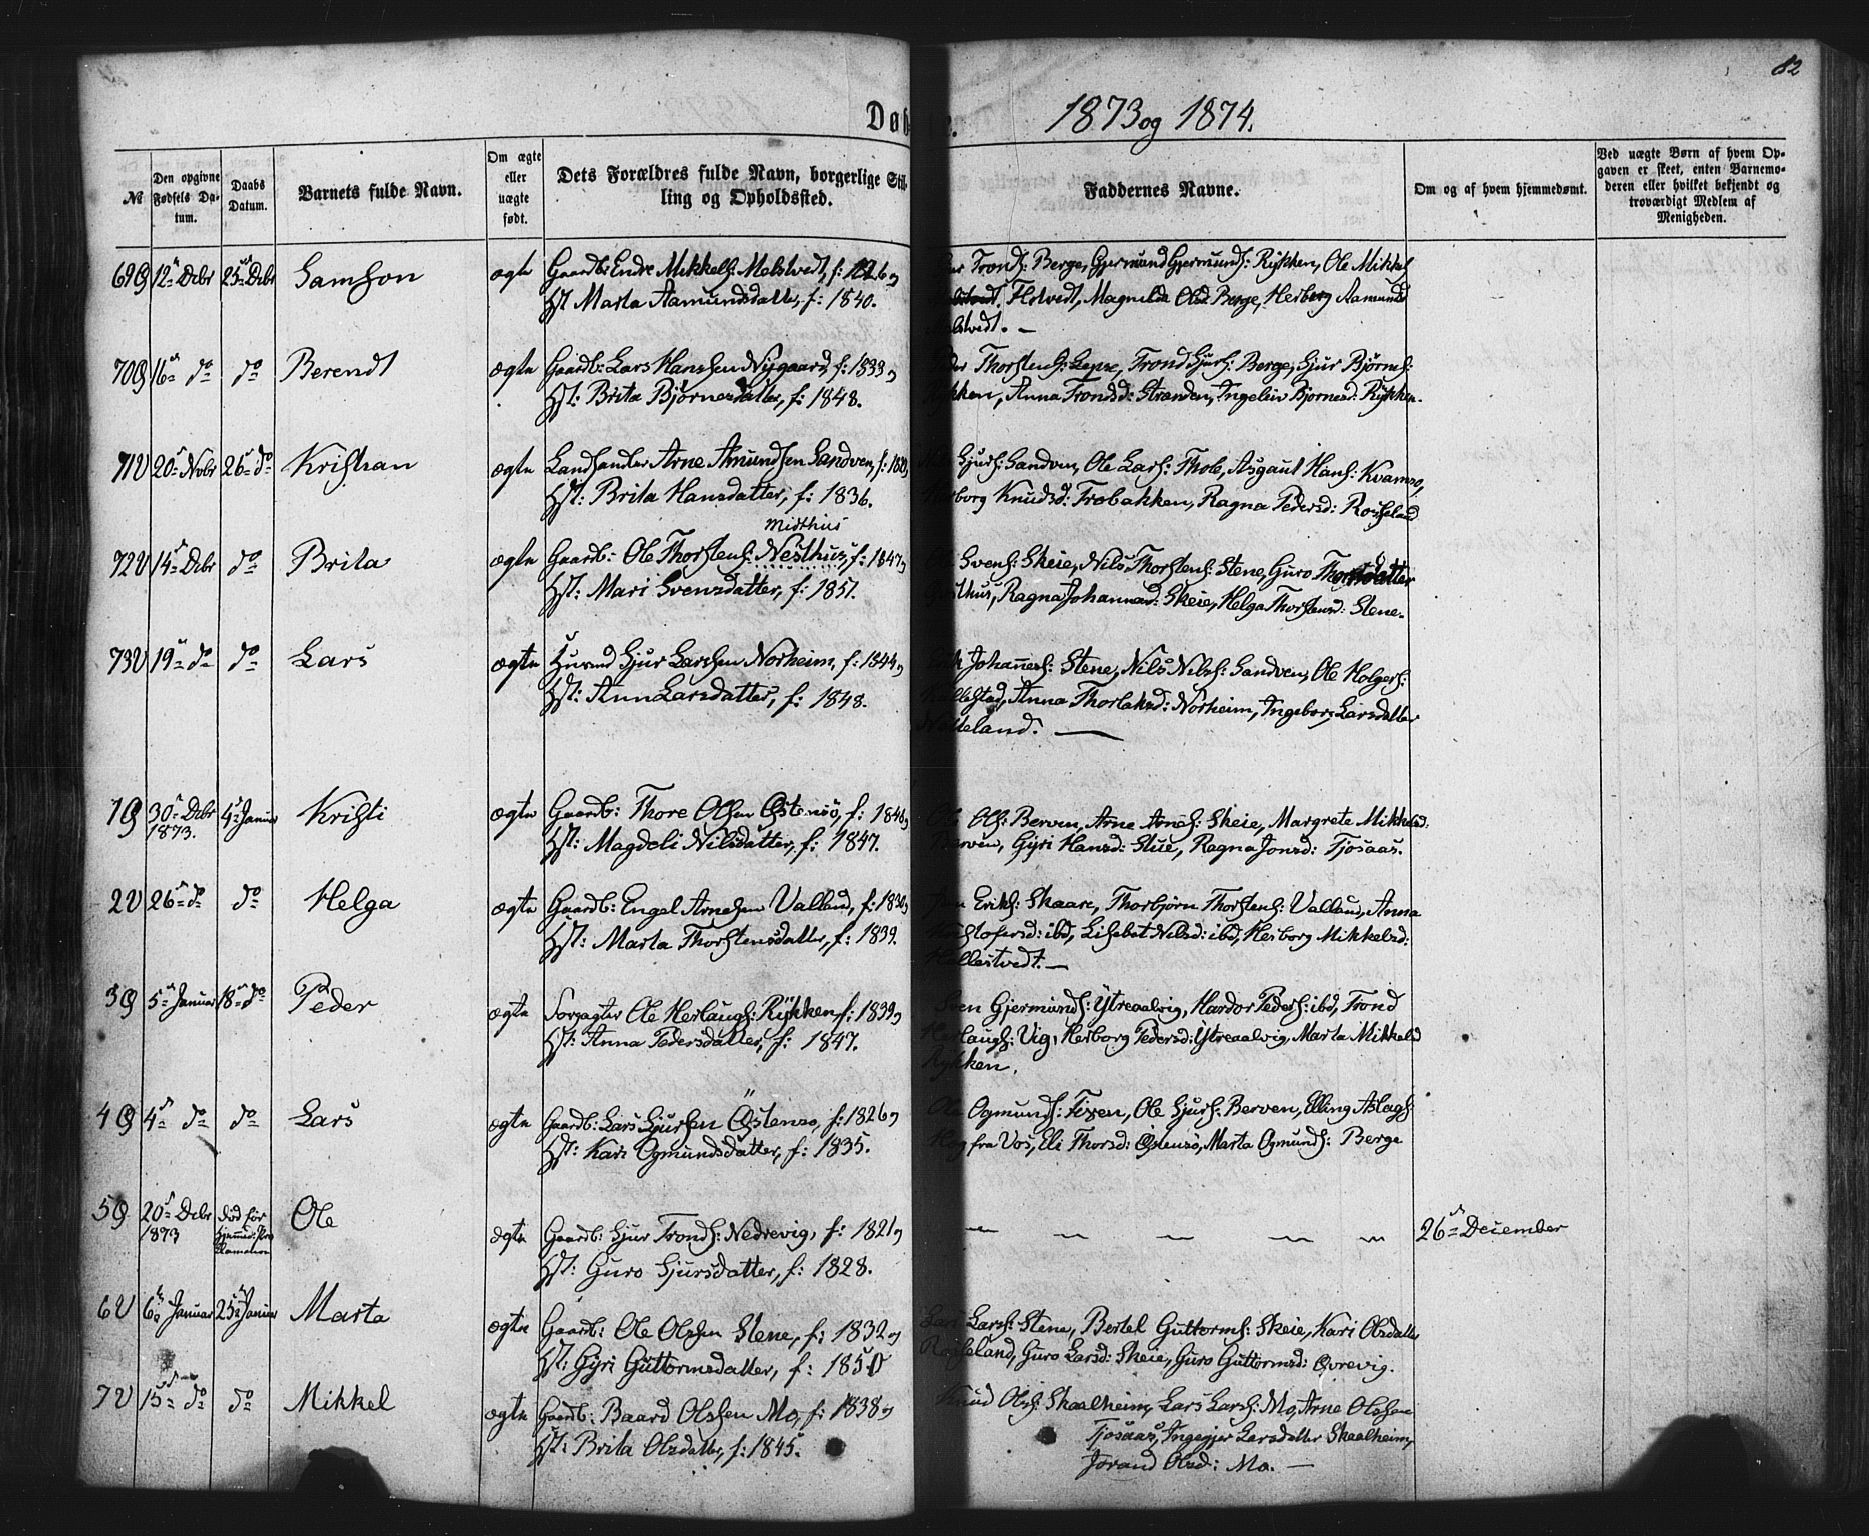 82
Døb 1873 og 1874.
№
Den opgivne Fødsels Datum.
Daabs Datum.
Barnets fulde Navn.
Om ægte eller uægte født.
Dets Forældres fulde Navn, borgerlige Stilling og Opholdssted.
Faddernes Navne.
Om og af hvem hjemmedøbt.
Ved uægte Børn af hvem Opgaven er skeet, enten Barnemoderen eller hvilket bekjendt og troværdigt Medlem af Menigheden.
69Ø 12te Dcbr 25de Dcbr Samson ægte Gaardb: Endre Mikkels: Melstvedt, f: og
Hst: Marta Aamundsdatter, f: 1840.
Trons: Berge, Gjermund Gjermunds: Rykken, Ole Mikkels:
Flotvedt, Magnilda Olsd: Berge, Herborg Aamundsd
70Ø 16de do do Berendt ægte Gaardb: Lars Hanssen Nygaard, f: 1833 og
Hst: Brita Bjørnesdatter, f: 1848.
Thorstens: Lepse, Trond Sjurs: Berge, Sjur Bjørns:
Rykken, Anna Tronds: Stranden, Ingeleiv Bjornesd: Rykken.
71V 20de Novbr 26de do Kristian ægte Landhandler Arne Amundsen Sandven, f: og
Hst: Brita Hansdatter, f: 1836.
Nils Sjurs: Sandven, Ole Lars: Thole, Asgaut Hans: Kvamsø,
Herborg Knudsd: Træbakken, Ragna Pedersd: Rosseland
Midthus
72V 14de Dcbr do Brita ægte Gaardb: Ole Thorstens: Nesthus, f: 1847 og
Hst: Mari Svensdatter, f: 1851.
Svens: Skeie, Nils Thorstens: Stene, Guro
Ragna Johannesd: Skeie, Helga Thorstensd: Stene.
73V 19de do do Lars ægte Husmd Sjur Larssen Norheim, f: 1844 og
Hst: Ann Larsdatter, f: 1848.
Johannes: Stene, Nils Nils: Sandven, Ole Holgers:
Anna Thorlaksd: Norheim, Ingeborg Larsdatter
1Ø 30te Dcbr 1873. 4de Januar Kristi ægte Gaardb: Thore Olsen Østensø, f: 1840 og
Hst: Magdeli Nilsdatter, f: 1847.
Ole Ols: Berven, Arne Arnes: Skeie, Margrete Mikkelsd:
Berven, Gyri Hansd: Stue, Ragna Jonsd: Tjosaas.
2V 26de do do Helga ægte Gaardb: Engel Arnesen Valland, f: og
Hst: Marta Thorstensdatter, f: 1839.
Eriks: Skaare, Thorbjørn Thorstens: Valland, Anna
Kristofersd: ibd, Lisebet Nilsd: ibd, Herborg Mikkelsd:
3Ø 5te Januar 18de do Peder ægte Forpagter Ole Herlaugs: Rykken f: 1839 og
Hst: Anna Pedersdatter, f: 1847.
Sven Gjermunds: Ytreaalvig, Hardor Peders: ibd, Trond
Herlaugs: Vig, Herborg Pedersd: Ytreaalvig, Marta Mikkelsd
Rykken.
4Ø 4de do do Lars ægte Gaardb: Lars Sjursen Östensø, f: 1826 og
Hst: Kari Ogmundsdatter, f: 1835.
Ole Ogmunds: Fixen, Ole Sjurs: Berven, Elling Aslags:
fra Vos, Eli Thorsd: Östensø, Marta Ogmunds: Berge
5Ø 20de Dcbr 1873 død før Ole ægte Gaardb: Sjur Tronds: Nedrevig, f: 1821 og
Hst: Guro Sjursdatter, f: 1828.
26de December
6V 6te Januar 25de Januar Marta ægte Gaardb: Ole Olssen Stene, f: 1832 og
Hst: Gyri Guttormsdatter, f: 1850
Lars Lars: Stene, Bertel Guttorms: Skeie, Kari Olsdatter
Rosseland, Guro Larsd: Skeie, Guro Guttormsd: Øvrevig.
7V 15de do do Mikkel ægte Gaardb: Baard Olssen Mo, f: 1838 og
Hst: Brita Olsdatter, f: 1845.
Knud Ols: Skaalheim, Lars Lars: Mo, Arne Olssen
Tjosaas, Ingegjer Larsdatter Skaalheim,
Jorand Olsd: Mo.